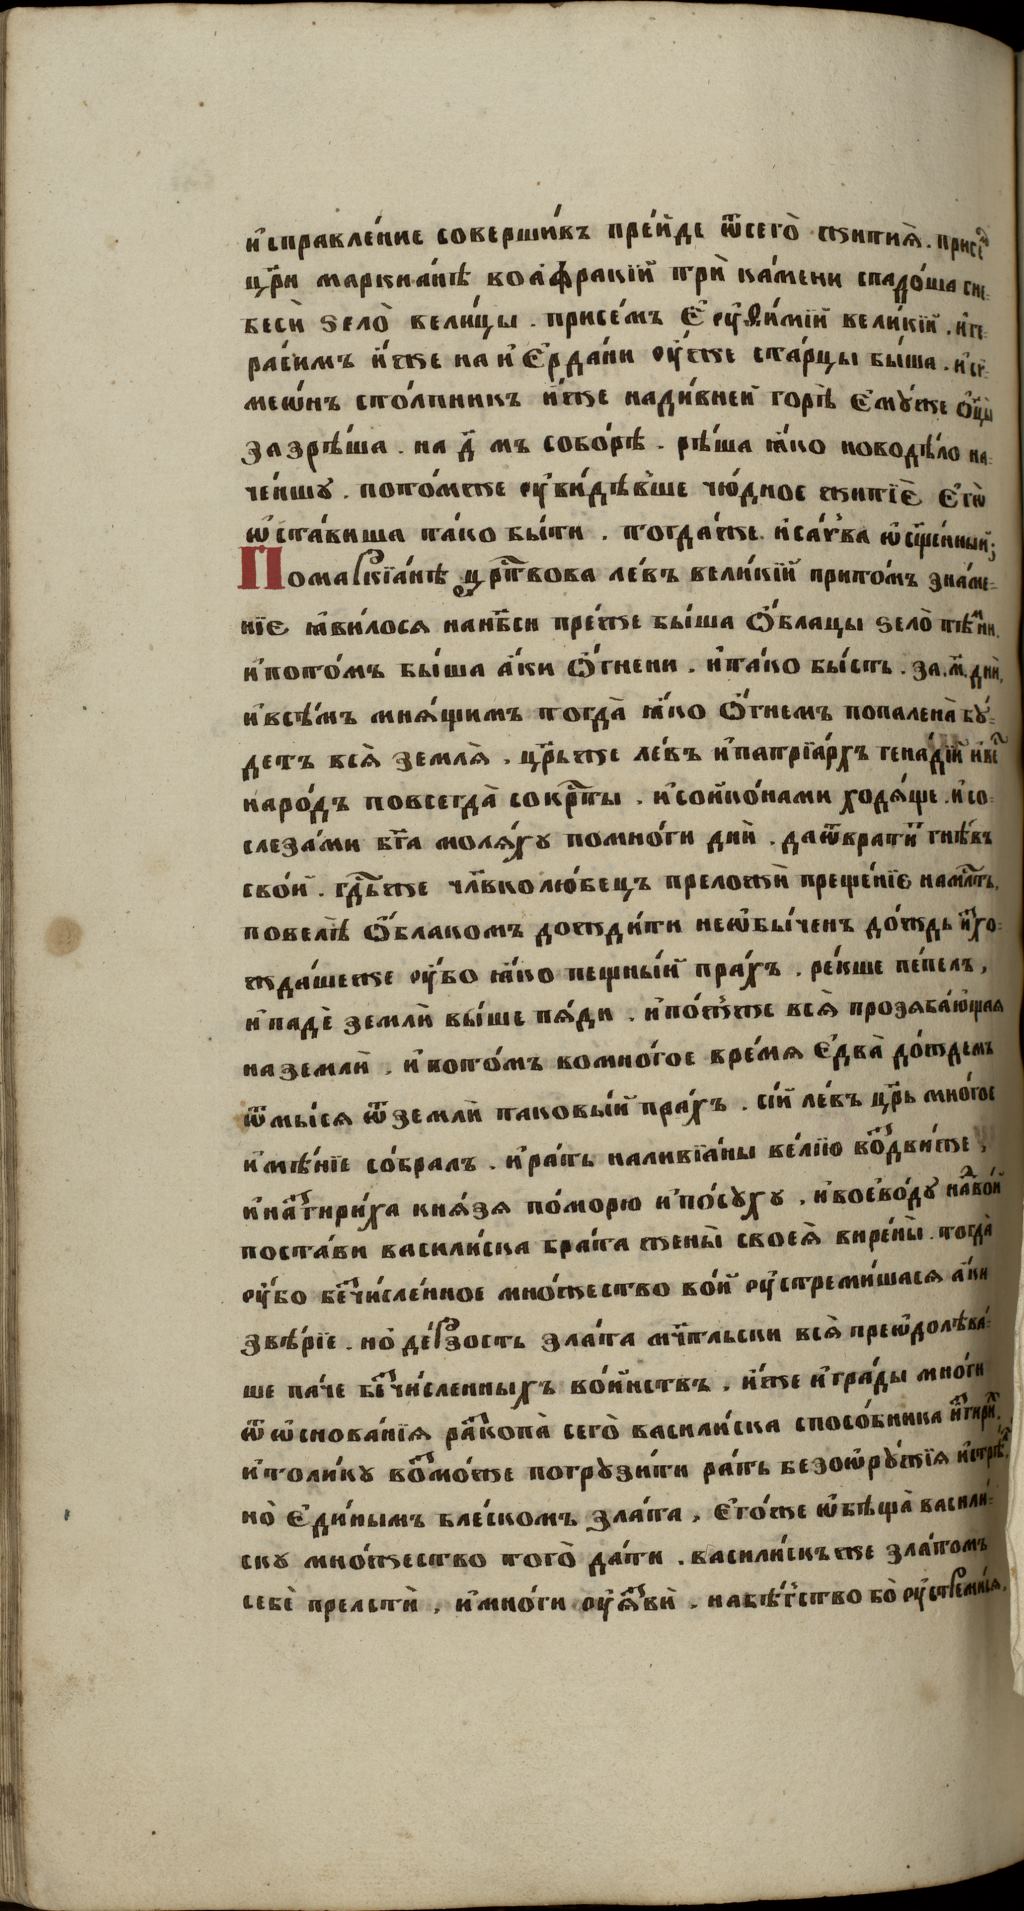 и҆справле́ние соверши́въ пре́йде ѿсего̀ житиѧ̀ . присе́
цр҃и маркиа́нѣ воа҆фраки́й трѝ ка́мени спадо́ша сне=
бесѝ ѕело̀ вели́цы . присе́мъ Є҆ѵѳи́мїй вели́кїй . и҆ге=
ра́симъ и҆́же на и҆Є҆рда́ни оу҆́же ста́рцы бы́ша . и҆си=
меѡ́нъ сто́лпникъ и҆́же нади́вней горѣ̀ Є҆мꙋ́же Ѻ҆ц҃ы̀
зазрѣ́ша . на д҃ мъ собо́рѣ . рѣ́ша ꙗ҆́ко новодѣ́ло на=
че́ншꙋ . пото́мже оу҆ви́дѣвше чю́дное житїѐ Є҆гѡ̀
ѡ҆ста́виша та́ко бы́ти . тогда́же и҆са́ѵва ѡ҆сщ҃е́нный ;
Помаркїа́нѣ црⷭ҇твова ле́въ вели́кїй прито́мъ зна́ме=
нїе ꙗ҆ви́лося нанб҃си пре́же бы́ша Ѻ҆́блацы ѕело̀ тѣ́мни ,
и҆пото́мъ бы́ша а҆́ки Ѻ҆́гнени . и҆та́ко бы́сть . за . м҃ . дні́й ,
и҆всѣ́мъ мня́щимъ тогда̀ ꙗ҆́ко Ѻ҆́гнемъ попалена̀ бꙋ́=
детъ всѧ̀ землѧ̀ . цр҃ьже ле́въ и҆патрїа́рхъ гена́дїй и҆ве́с
наро́дъ повсегда̀ сокрⷭ҇ты̀ . и҆сойко́нами ходя́ще . и҆со=
слеза́ми бг҃а моля́хꙋ помно́ги дні́й . даѿврати́т гнѣ́въ
сво́й . гдⷭ҇ьже члв҃колю́бецъ преложѝ преще́нїе намлⷭ҇ть ,
повелѣ̀ Ѻ҆́блакомъ дожди́ти неѡ҆бы́ченъ до́ждь и҆схо=
жда́шеже оу҆́бо ꙗ҆́ко пещны́й пра́хъ . ре́кше пе́пелъ ,
и҆падѐ землѝ вы́ше пя́ди . и҆по́жже всѧ̀ прозяба́ющая
на землѝ . и҆ потом́ъ вомно́гое вре́мя Є҆два̀ до́ждемъ
ѿмы́ся ѿземлѝ таковы́й пра́хъ . сі́й ле́въ цр҃ь мно́гое
и҆мѣ́нїе со́бралъ . и҆ра́ть наливїа́ны ве́лїю воздви́же ,
и҆назгири́ха кня́зя по́морю и҆по́сꙋхꙋ . и҆воєво́дꙋ надвои
поста́ви васили́ска бра́та жены̀ своеѧ̀ вире́ны̀ . тогда̀
оу҆́бо безчи́сле́нное мно́жество во́й оу҆стреми́шася а҆́ки
звѣ́рїе . но̀ де́рзость зла́та мч҃тльски всѧ̀ преѡ҆долѣва́=
ше па́че безчи́сленныхъ во́инствъ . и҆́же и҆гра́ды мно́ги
ѿ ѡ҆снова́нїя раскопа̀ сего̀ васили́ска спосо́бника и҆згири́х .
и҆толи́кꙋ возмо́же погрꙋзи́ти ра́ть безоѡ҆рꙋ́жїя и҆стрѣ́л ,
но̀ Є҆ди́нымъ бле́скомъ зла́та , Є҆го́же ѡ҆бѣща̀ васили́=
скꙋ мно́жество того̀ да́ти . васили́скъже зла́томъ
себѐ прельстѝ , и҆мно́ги оу҆язвѝ . набѣ́гство бо̀ оу҆стреми́ся .